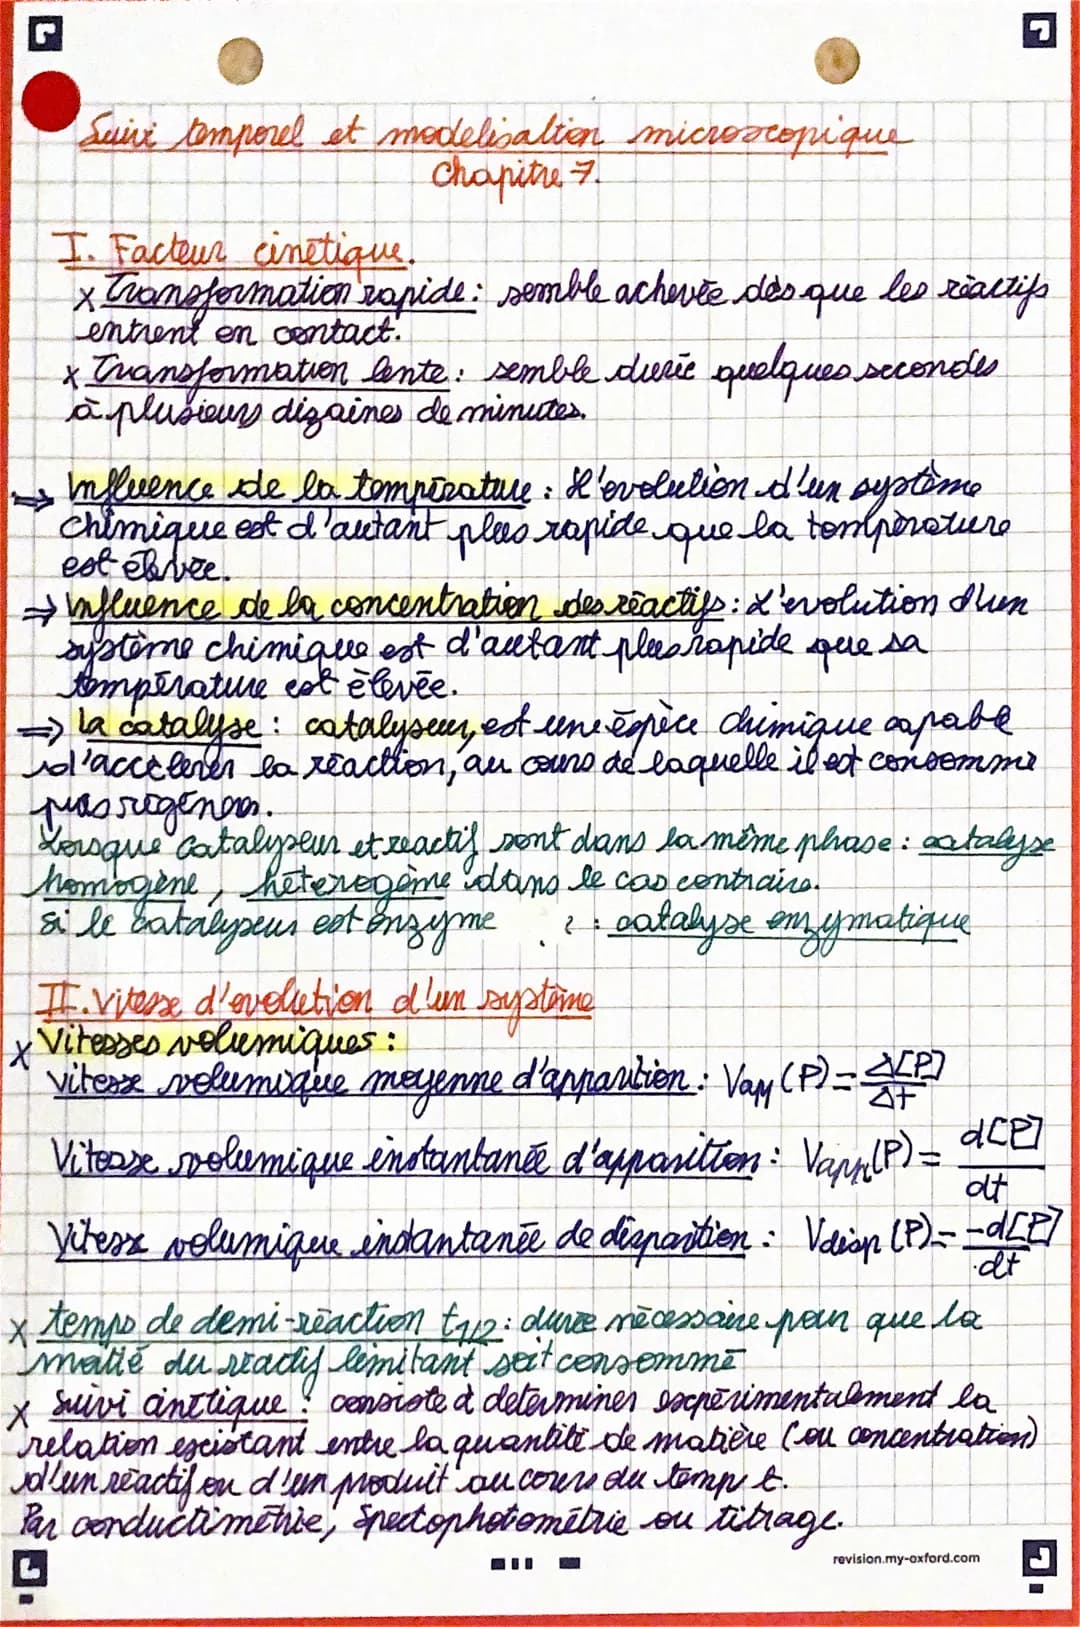 Suivi temporel et modelisation microscopique
Chapitre 7.
I. Facteur cinétique.
x Transformation rapide : semble achevée dès que les réactifs
entrent en contact.
x Transformation lente : semble durée quelques secondes
à plusieurs dizaines de minutes.
⇒ Influence de la température : L'evolution d'un système
chimique est d'autant plus rapide que la température
est élevée.
⇒ Influence de la concentration des réactifs : L'evolution d'un
système chimique est d'autant plus rapide que sa
température est élevée.
⇒ La catalyse : catalyseur, est une espèce chimique capable
d'accélerer la réaction, au cours de laquelle il est consommé
puis régénéré.
Lorsque catalyseur et reactif sont dans la même phase : catalyse
homogène, hétérogène dans le cas contraire.
si le catalyseur est enzyme : catalyse enzymatique
II. Vitesse d'evolution d'un système
x Vitesses volumiques :
vitesse volumique moyenne d'apparition : Vapp (P) = Δ[P]/Δt
Vitesse volumique instantanée d'apparition : Vapp(P) = d[P]/dt
Vitesse volumique instantanée de disparition : Vdisp (P) = -d[P]/dt
x temps de demi-réaction t1/2 : durée nécessaire pour que la
moitié du réactif limitant soit consommé
x Suivi cinétique : consiste à déterminer expérimentalement la
relation existant entre la quantité de matière (ou concentration)
d'un réactif ou d'un produit au cours du temp t.
Par conductimétrie, Spectophotométrie ou titrage.
revision.my-oxford.com